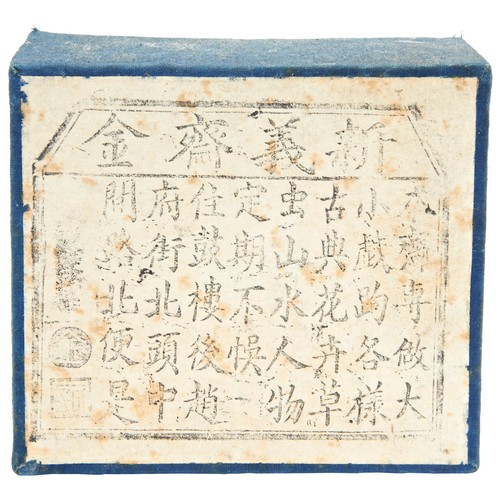 新義齋金
本齋專做大
小戲齣各樣
古典花卉草
虫山水人物
定期不悞一
住鼓樓後趙
府街北頭中
間路北便是